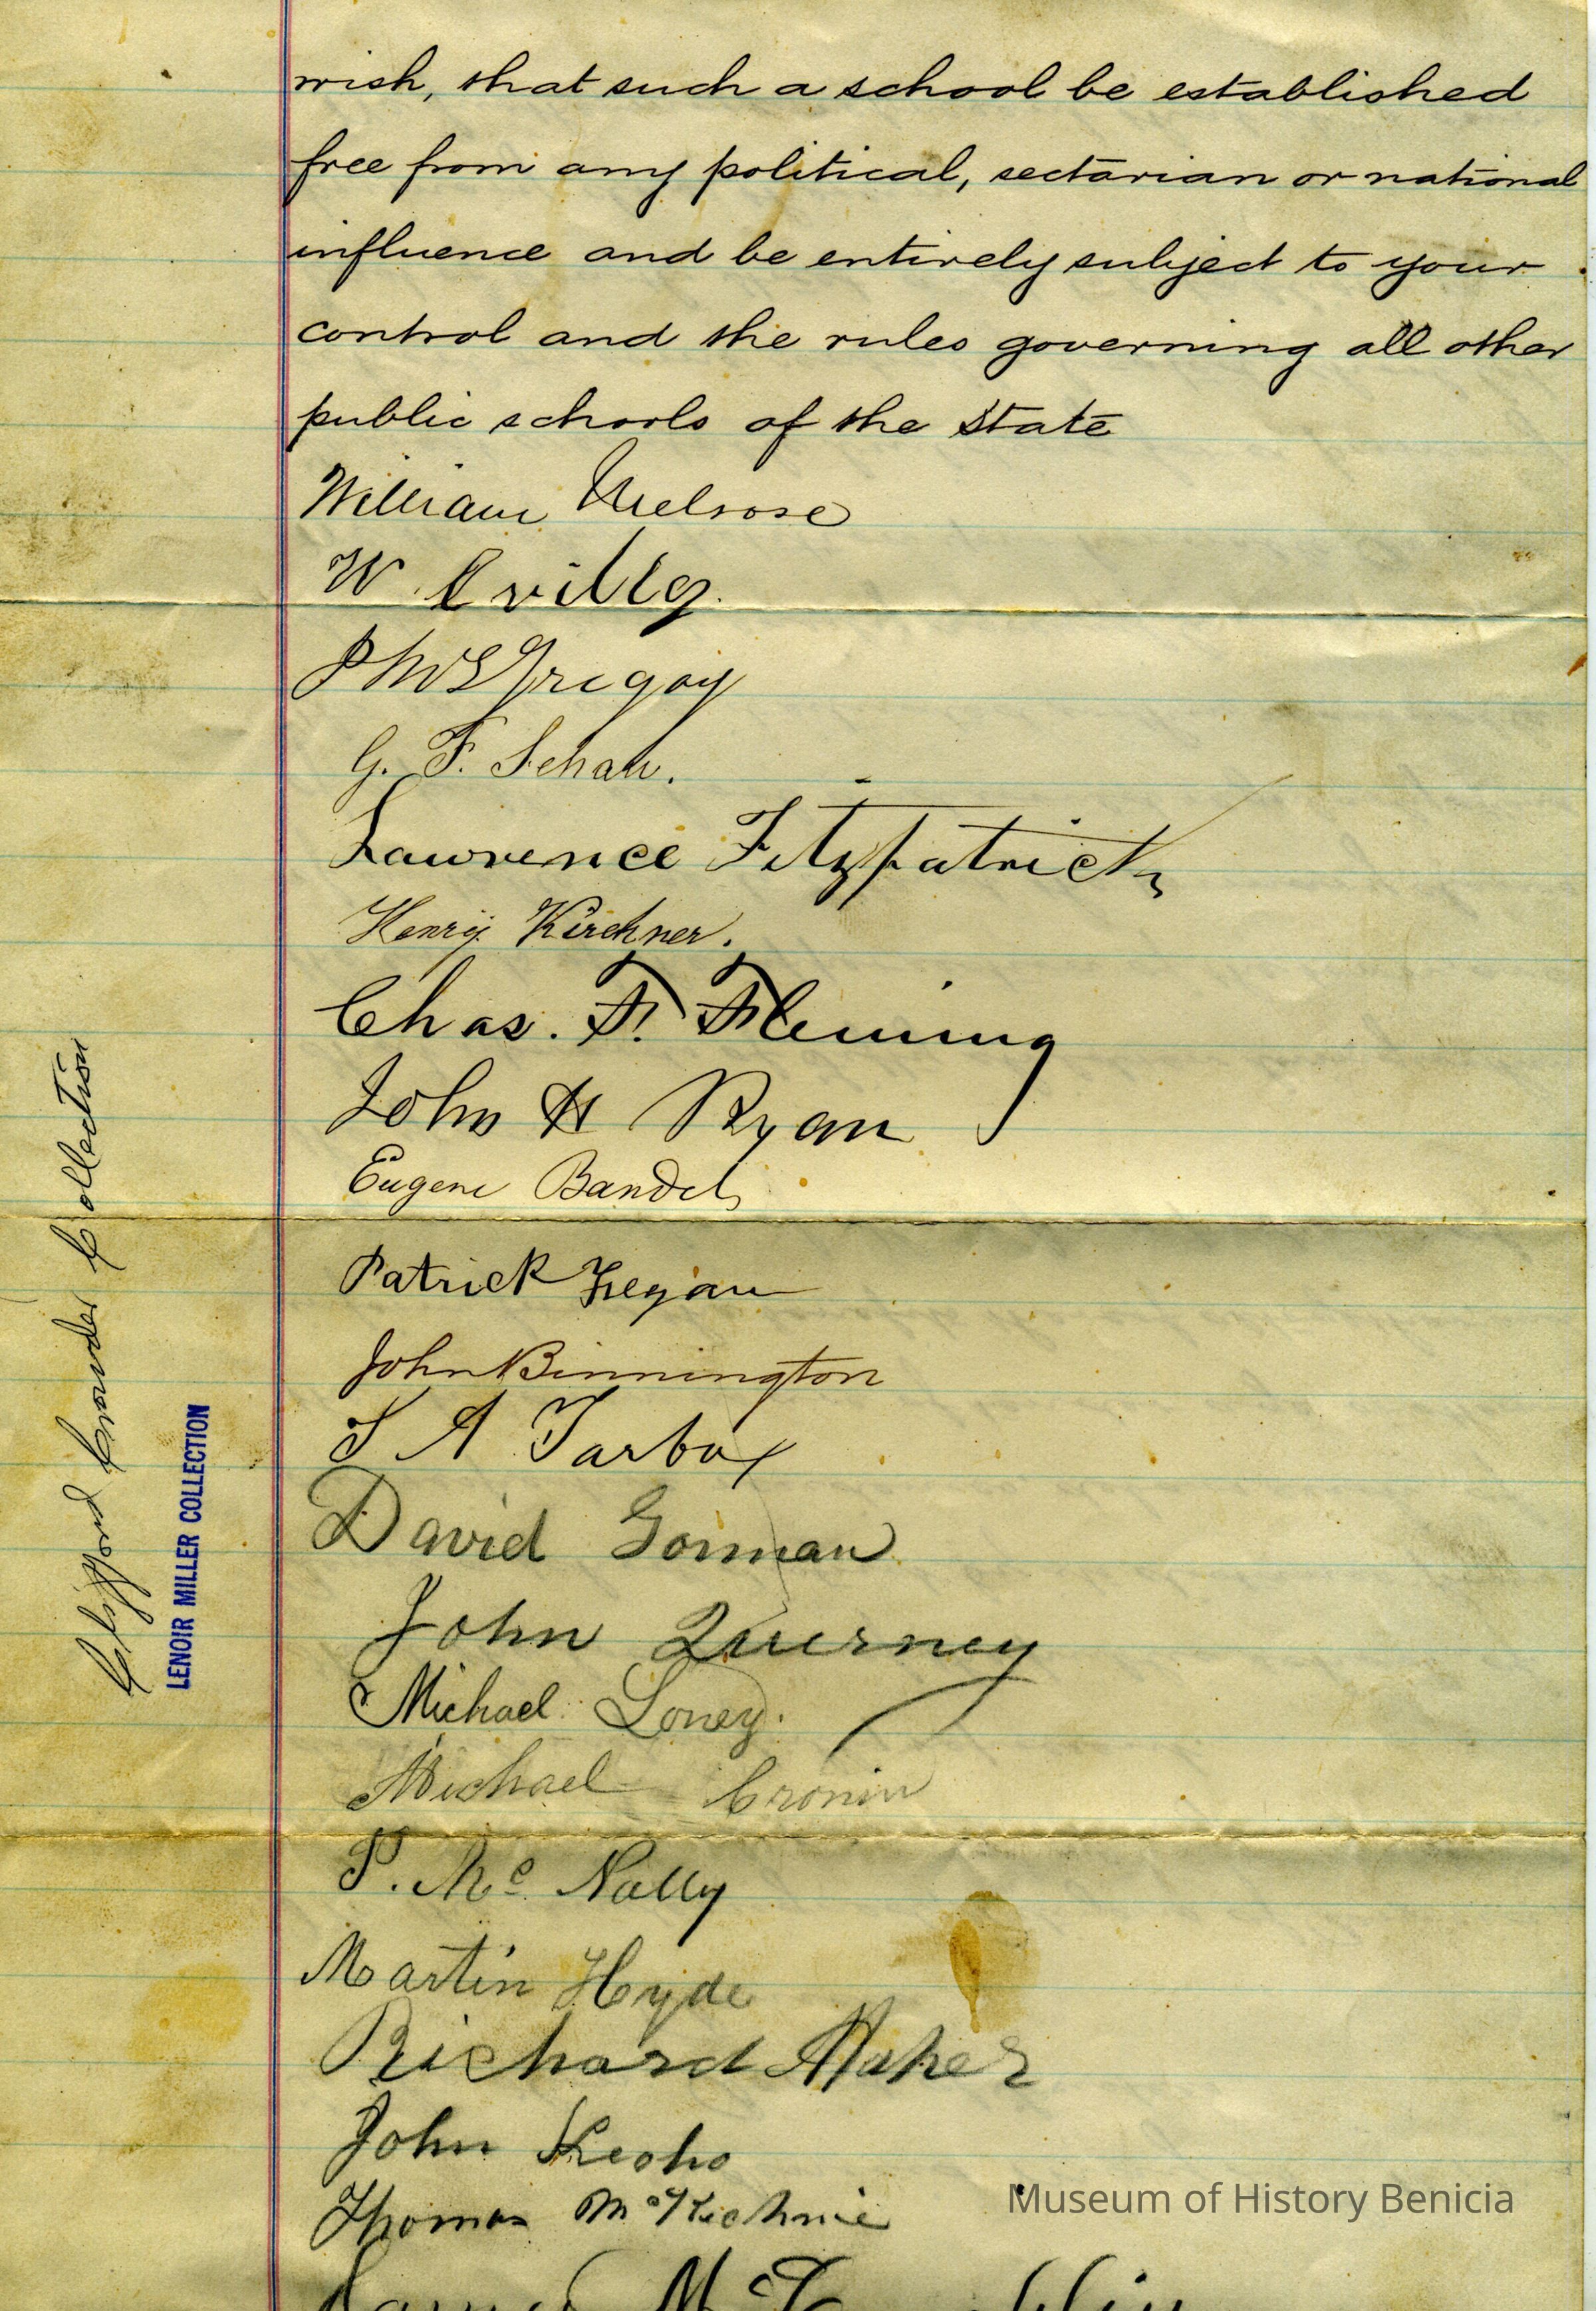 wish, that such a school be established
free from any political, sectarian or national
influence and be entirely subject to your
control and the rules governing all other
public schools of the State
William Melrose
W.
G. F. Schau.
Lawrence Fitzpatrick
Henry Kirchner.
Chas. F. Fleming
John H Ryan
Eugene Bandel
Patrick
John Binnington
A Tarbox
David Gorman
John
Michael Loney.
Michael Cronin
P. Mc. Nally
Martin Hyde
Richard Maher
John Keoho
Thomas McKechnie
Clifford Crowder Collection
LENOIR MILLER COLLECTION
Museum of History Benicia